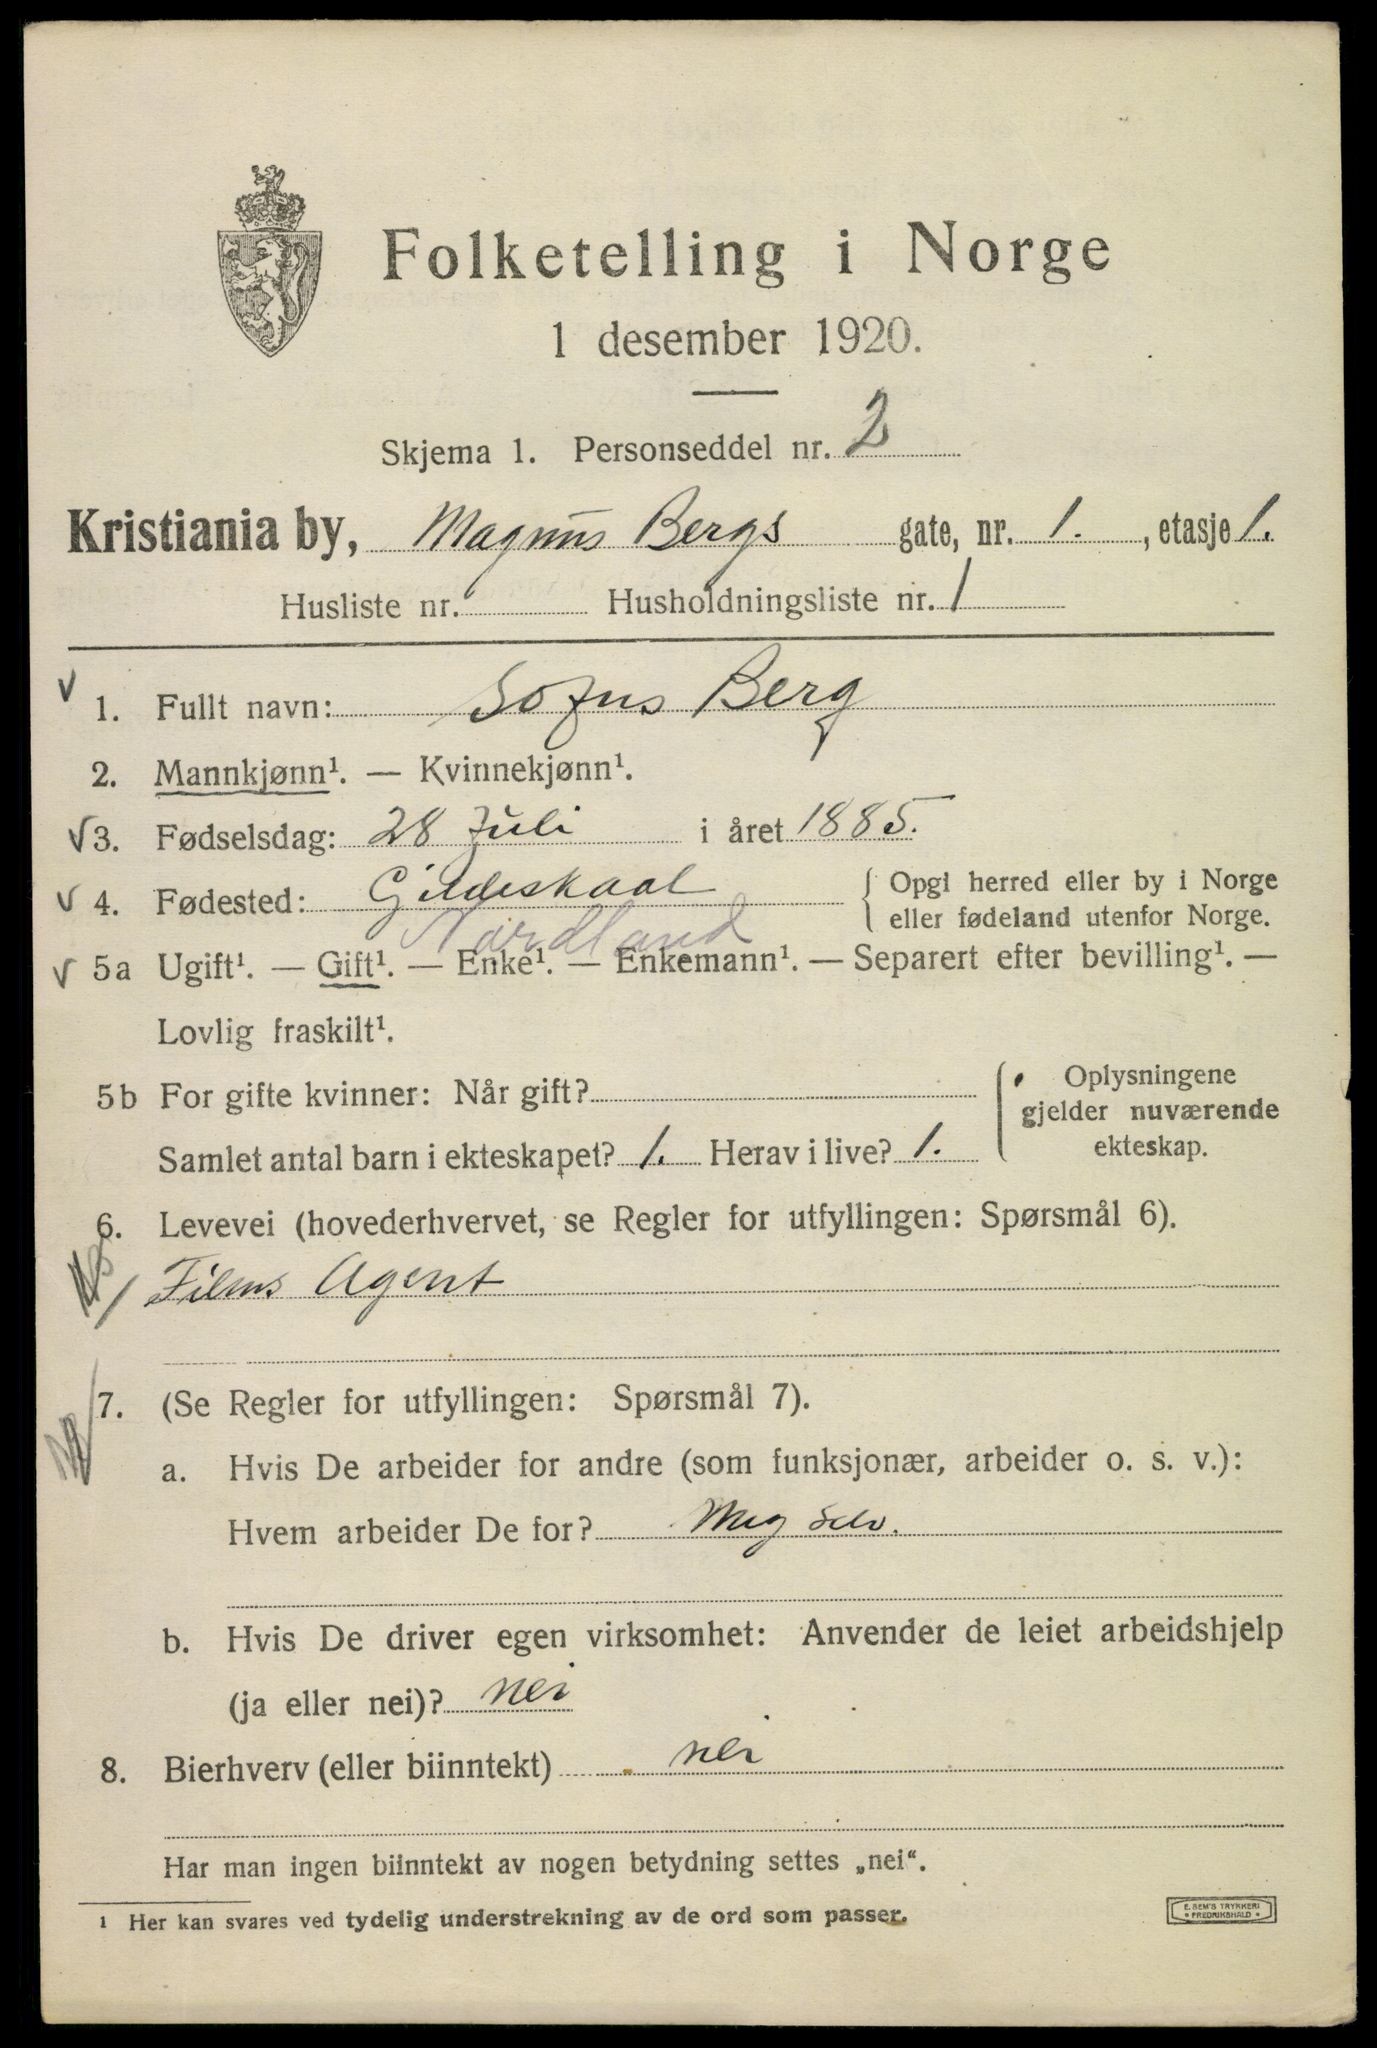 Folketelling i Norge
1 desember 1920.
Skjema 1. Personseddel nr. 2
Kristiania by, Magnus Bergs gate, nr. 1. , etasje 1.
Husliste nr. Husholdningsliste nr. 1
1. Fullt navn: Sofus Berg
2. Mannkjønn¹. — Kvinnekjønn¹.
3. Fødselsdag: 28 Juli i året 1885.
4. Fødested: Gildeskaal { Opgi herred eller by i Norge
eller fødeland utenfor Norge.
Nordland
5a Ugift¹. — Gift¹. — Enke¹. — Enkemann¹. — Separert efter bevilling¹. —
Lovlig fraskilt¹.
5b For gifte kvinner: Når gift? { Oplysningene
gjelder nuværende
Samlet antal barn i ekteskapet? 1. Herav i live? 1. ekteskap.
6. Levevei (hovederhvervet, se Regler for utfyllingen: Spørsmål 6).
Films Agent
7. (Se Regler for utfyllingen: Spørsmål 7).
a. Hvis De arbeider for andre (som funksjonær, arbeider o. s. v.):
Hvem arbeider De for? Meg Selv.
b. Hvis De driver egen virksomhet: Anvender de leiet arbeidshjelp
(ja eller nei)? nei
8. Bierhverv (eller biinntekt) nei
Har man ingen biinntekt av nogen betydning settes „nei“.
¹ Her kan svares ved tydelig understrekning av de ord som passer.
E. SEM'S TRYKKERI
• FREDRIKSHALD •